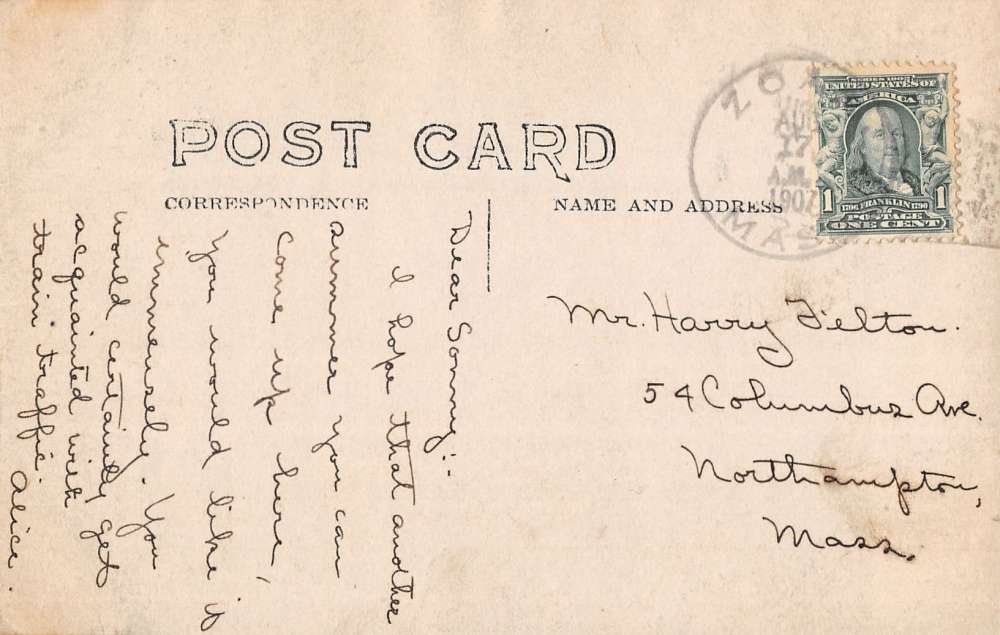 POST CARD
CORRESPONDENCE
NAME AND ADDRESS
ZOA
AUG
27
A.M.
1907
MASS
SERIES 1902
UNITED STATES OF
AMERICA
1 1
1706 FRANKLIN 1790
POSTAGE
ONE CENT
Dear Sonny:-
I hope that another
summer you can
come up here,
you would like it
immensely. You
would certainly get
acquainted with
train traffic.
Alice.
Mr. Harry Felton.
54 Columbus Ave.
Northampton,
Mass.